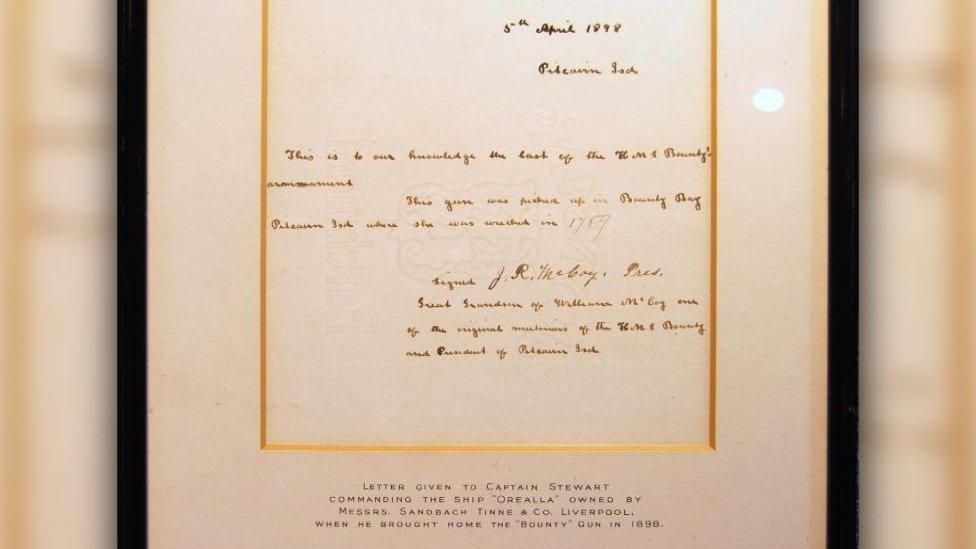 5th April 1898
Pitcairn Isd
This is to our knowledge the last of the H M S Bounty's
arammament
This gun was picked up in Bounty Bay
Pitcairn Isd where she was wrecked in 1789
Signed J. R. McCoy. Pres.
Great Grandson of William McCoy one
of the original mutineers of the H M S Bounty
and President of Pitcairn Isd
LETTER GIVEN TO CAPTAIN STEWART
COMMANDING THE SHIP "OREALLA" OWNED BY
MESSRS. SANDBACH TINNE & CO. LIVERPOOL,
WHEN HE BROUGHT HOME THE "BOUNTY" GUN IN 1898.